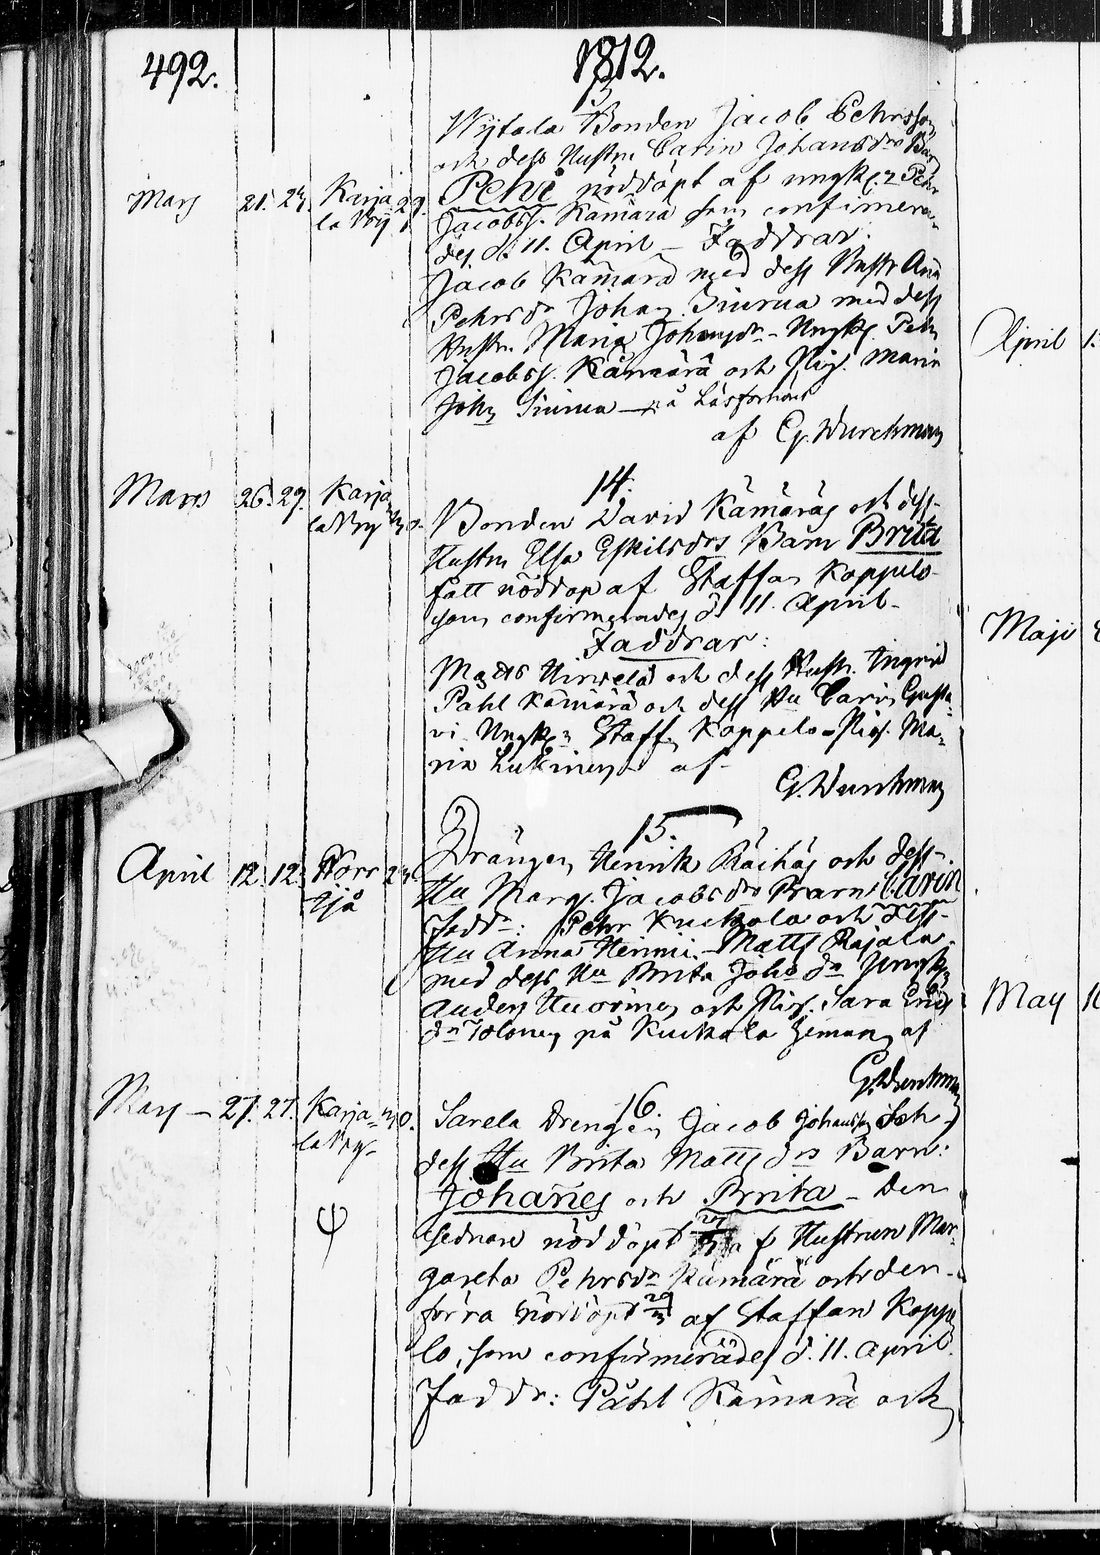 492.
1812.
13
Wijtala Bonden Jacob Pehrsson
och dess Hustru Carin Johansdrs Barn
Mars 21. 24. Karja 29. Pehr nöddöpt af ungk: Pehr
la By Jacobss. Kämärä som confimera-
des d. 11. April – Faddrar:
Jacob Kämärä med dess Hustr Ana
Pehrsdr Johan Siurua med dess
Hustr. Maria Johansdr - Ungk. Pehr
Jacobss. Kämärä och Pig. Maria
Joh Siurua – på Läsförhör
af G. Wurchman
14.
Mars 26. 29. Karja 30. Bonden David Kämäräs och dess
la By Hustru Elsa Eskilsdrs Barn Brita
fått nöddop af Staffan Koppelo
som confirmerades d 11. April -
Faddrar:
Matts och dess Hustr. Ingrid
Pahl Kämärä och dess Hu Carin Gusta-
vi Ungk Staff Koppelo Pig. Ma-
ria af
G. Wurchman
15.
April 12. 12. Norr 24 Drängen Henrik Räihäs och dess
sjå Hu Marg. Jacobsdrs Barn: Carin
Fadd: Pehr Kuckola och dess
Hu Anna Heinni. Matts Rajala
med dess Hu Brita Johs dr Ungk
Anders Huovinen och Pig. Sara Erics
dr Tolonen på Kuckola hemman af
G. Wurchman
16.
Mars – 27. 27. Karja 30. Sarela Drengen Jacob Johansson och
la By dess Hu Brita Matts drs Barn:
Johannes och Brita – Den
sednare nöddöpt 27/3 af Hustrun Mar-
gareta Pehrsdr Kämärä och den
förra nöddöpt 29/3 af Staffan Koppe
lo, som confirmerades d. 11. April.
Faddr: Påhl Kämärä och
April 1
Maji 8
May 10